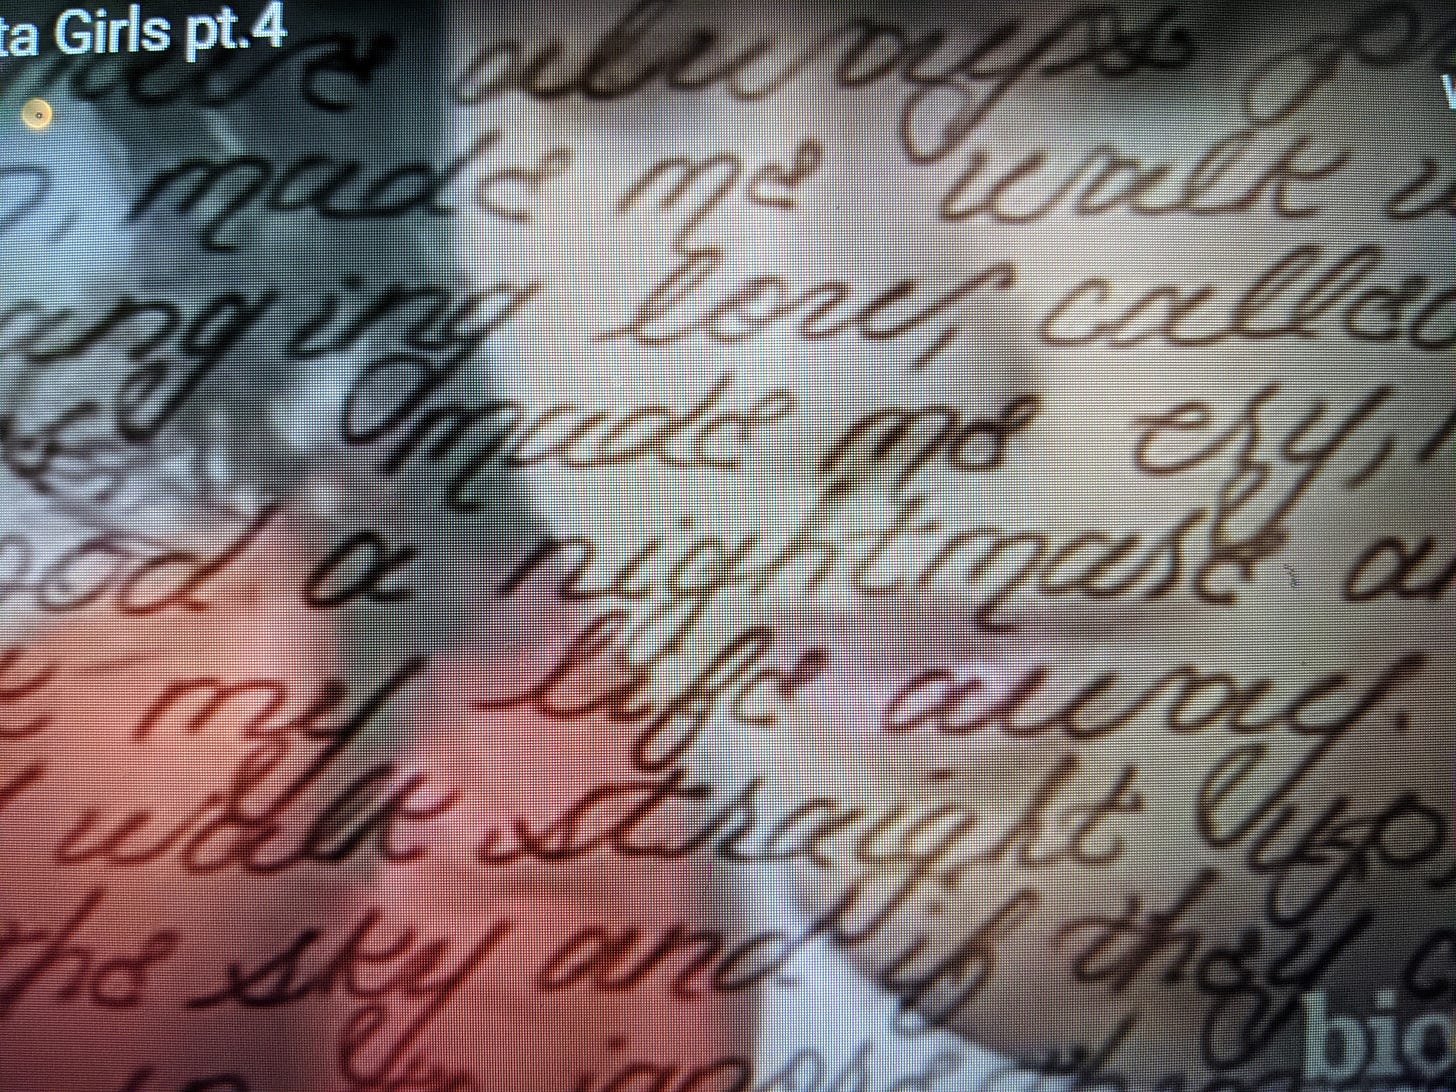 ta Girls pt.4
always
made me walk
anging love, called
made me cry,
a nightmare
my life away.
walk straight up
the sky and if they
bio